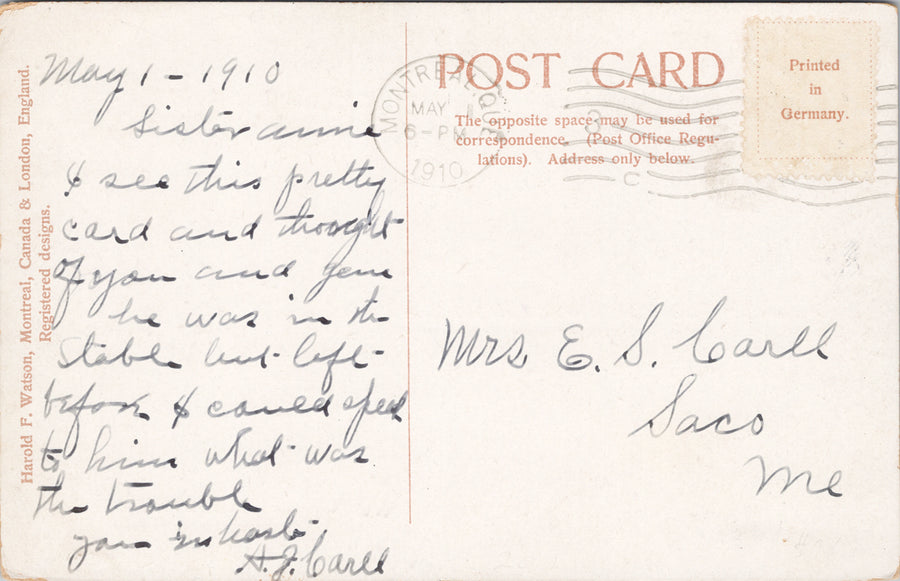 Harold F. Watson, Montreal, Canada & London, England.
Registered designs.
May 1 - 1910
Sister annie
I see this pretty
card and thought
of you and gene
he was in the
Stable but left
before I could speak
to him what was
the trouble
yours in haste
A. J. Carll
POST CARD
The opposite space may be used for
correspondence. (Post Office Regu-
lations). Address only below.
MONTREAL, QUE
MAY 1
6-PM
1910
3
C
Printed
in
Germany.
Mrs E. S. Carll
Saco
Me